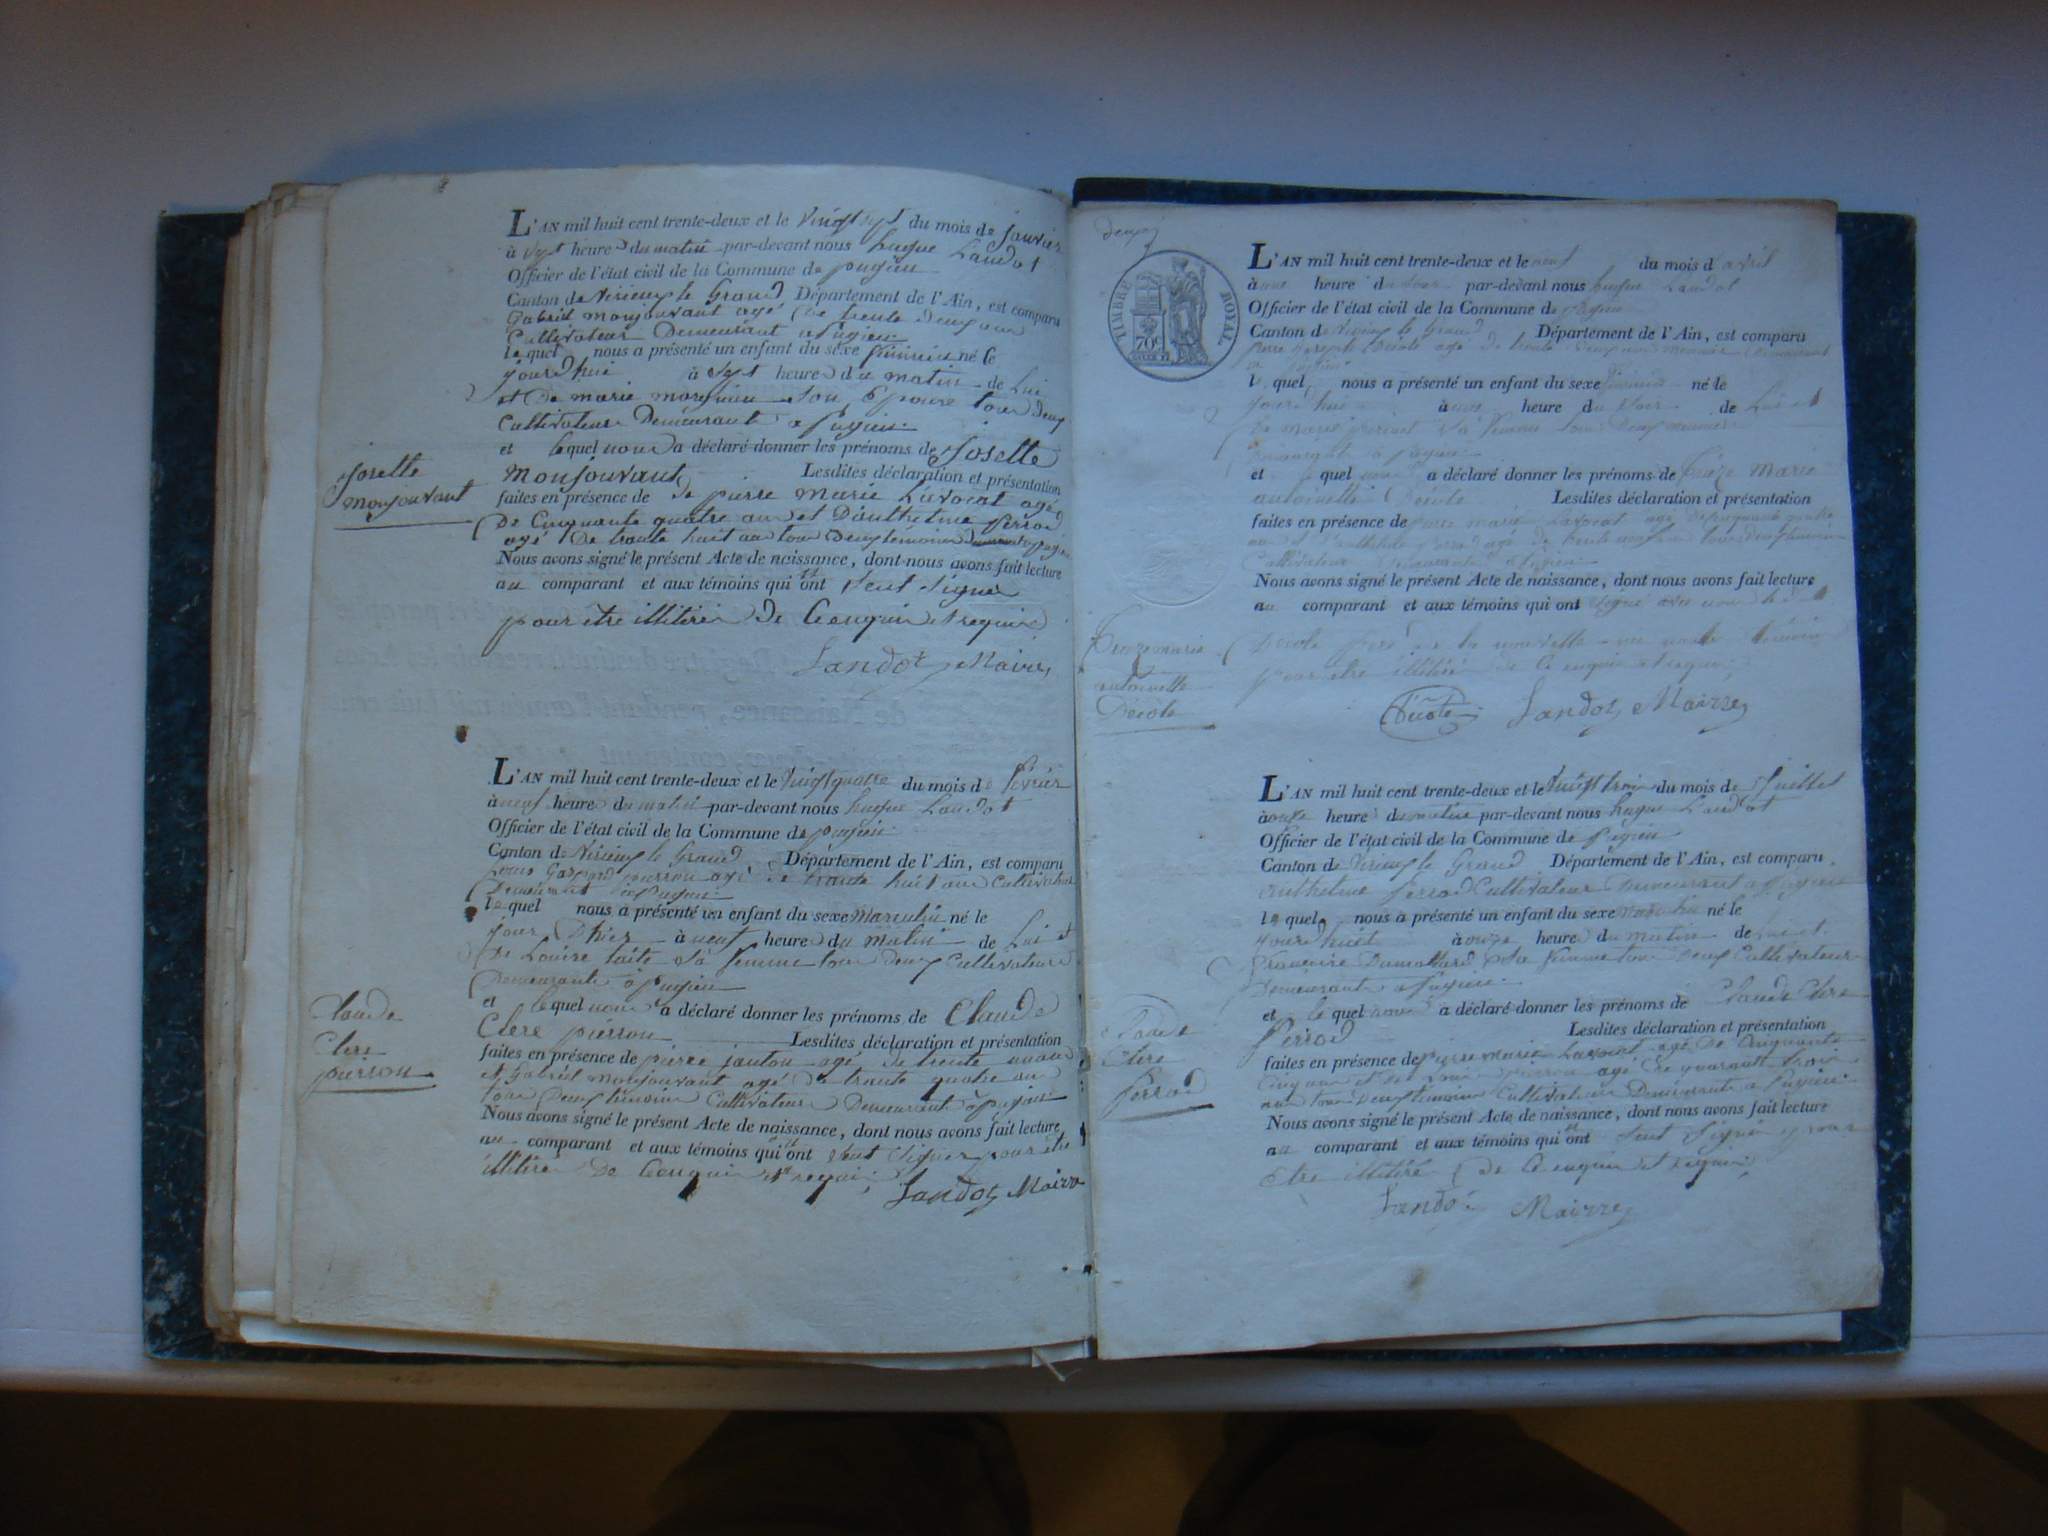 L'AN mil huit cent trente-deux et le vingt sept du mois de Janvier
à sept heure du matin par-devant nous hugue Landot
Officier de l'état civil de la Commune de pugieu
Canton de Virieux le Grand Département de l'Ain, est comparu
Gabriel monjouvant agé de trente deux ans
Cultivateur Demeurant a Pugieu
lequel nous a présenté un enfant du sexe féminin né le
jourdhui à sept heure du matin de Lui
et De marie son Epouse tous deux
Cultivateur Demeurant a Pugieu
et lequel nous a déclaré donner les prénoms de Josette
Monjouvant Lesdites déclaration et présentation
faites en présence de de pierre marie Lavocat agé
De Cinquante quatre ans et D'anthelme perrod
agé De trente huit ans tous Deux temoins
Nous avons signé le présent Acte de naissance, dont nous avons fait lecture
au comparant et aux témoins qui ont Signer
pour etre illitéré De Ce enquis et requis
Landot Maire
Josette
monjouvant
L'AN mil huit cent trente-deux et le vingt quatre du mois de février
à neuf heure du matin par-devant nous hugue Landot
Officier de l'état civil de la Commune de pugieu
Canton de Virieux le Grand Département de l'Ain, est comparu
pierron agé de trente huit ans Cultivateur
Demeurant a Pugieu
lequel nous a présenté un enfant du sexe masculin né le
jour D'hier à neuf heure du matin de Lui et
De Louise sa femme tous deux Cultivateur
Demeurant a pugieu
et lequel nous a déclaré donner les prénoms de Claude
Clere pierron Lesdites déclaration et présentation
faites en présence de pierre janton agé de trente
et Gabriel monjouvant agé De trente quatre ans
tous Deux témoins Cultivateur Demeurant a pugieu
Nous avons signé le présent Acte de naissance, dont nous avons fait lecture
au comparant et aux témoins qui ont Signer pour etre
illitéré De Ce enquis et requis
Landot Maire
Claude
Clere
pierron
deux
TIMBRE ROYAL
70c
L'AN mil huit cent trente-deux et le neuf du mois d avril
à une heure du soir par-devant nous hugue Landot
Officier de l'état civil de la Commune de pugieu
Canton de Virieux le Grand Département de l'Ain, est comparu
pierre joseph Décote agé de trente deux ans meunier Demeurant
a pugieu
lequel nous a présenté un enfant du sexe féminin né le
jourdhui à une heure du soir de Lui et
De marie sa femme tous deux meunier
Demeurant a pugieu
et lequel nous a déclaré donner les prénoms de marie
antoinette Décote Lesdites déclaration et présentation
faites en présence de pierre marie Lavocat agé de cinquante quatre
ans et D'anthelme perrod agé de trente tous deux témoins
Cultivateur Demeurant a Pugieu
Nous avons signé le présent Acte de naissance, dont nous avons fait lecture
au comparant et aux témoins qui ont signé avec nous
Décote pere
pour etre illitéré de Ce enquis et requis
Décote Landot Maire
marie
antoinette
Décote
L'AN mil huit cent trente-deux et le vingt trois du mois de Juillet
à onze heure du matin par-devant nous hugue Landot
Officier de l'état civil de la Commune de Pugieu
Canton de Virieux le Grand Département de l'Ain, est comparu
anthelme perrod Cultivateur Demeurant a Pugieu
lequel nous a présenté un enfant du sexe masculin né le
jourdhuit à onze heure du matin de Lui et
françoise Dumollard Sa femme tous deux Cultivateur
Demeurant a Pugieu
et lequel nous a déclaré donner les prénoms de Claude Clere
Perrod Lesdites déclaration et présentation
faites en présence de pierre marie Lavocat agé De Cinquante
Cinq ans et de pierron agé De quarante trois
ans tous Deux témoins Cultivateur Demeurant a Pugieu
Nous avons signé le présent Acte de naissance, dont nous avons fait lecture
au comparant et aux témoins qui ont Signer pour
etre illitéré De Ce enquis et requis
Landot Maire
Claude
Clere
Perrod